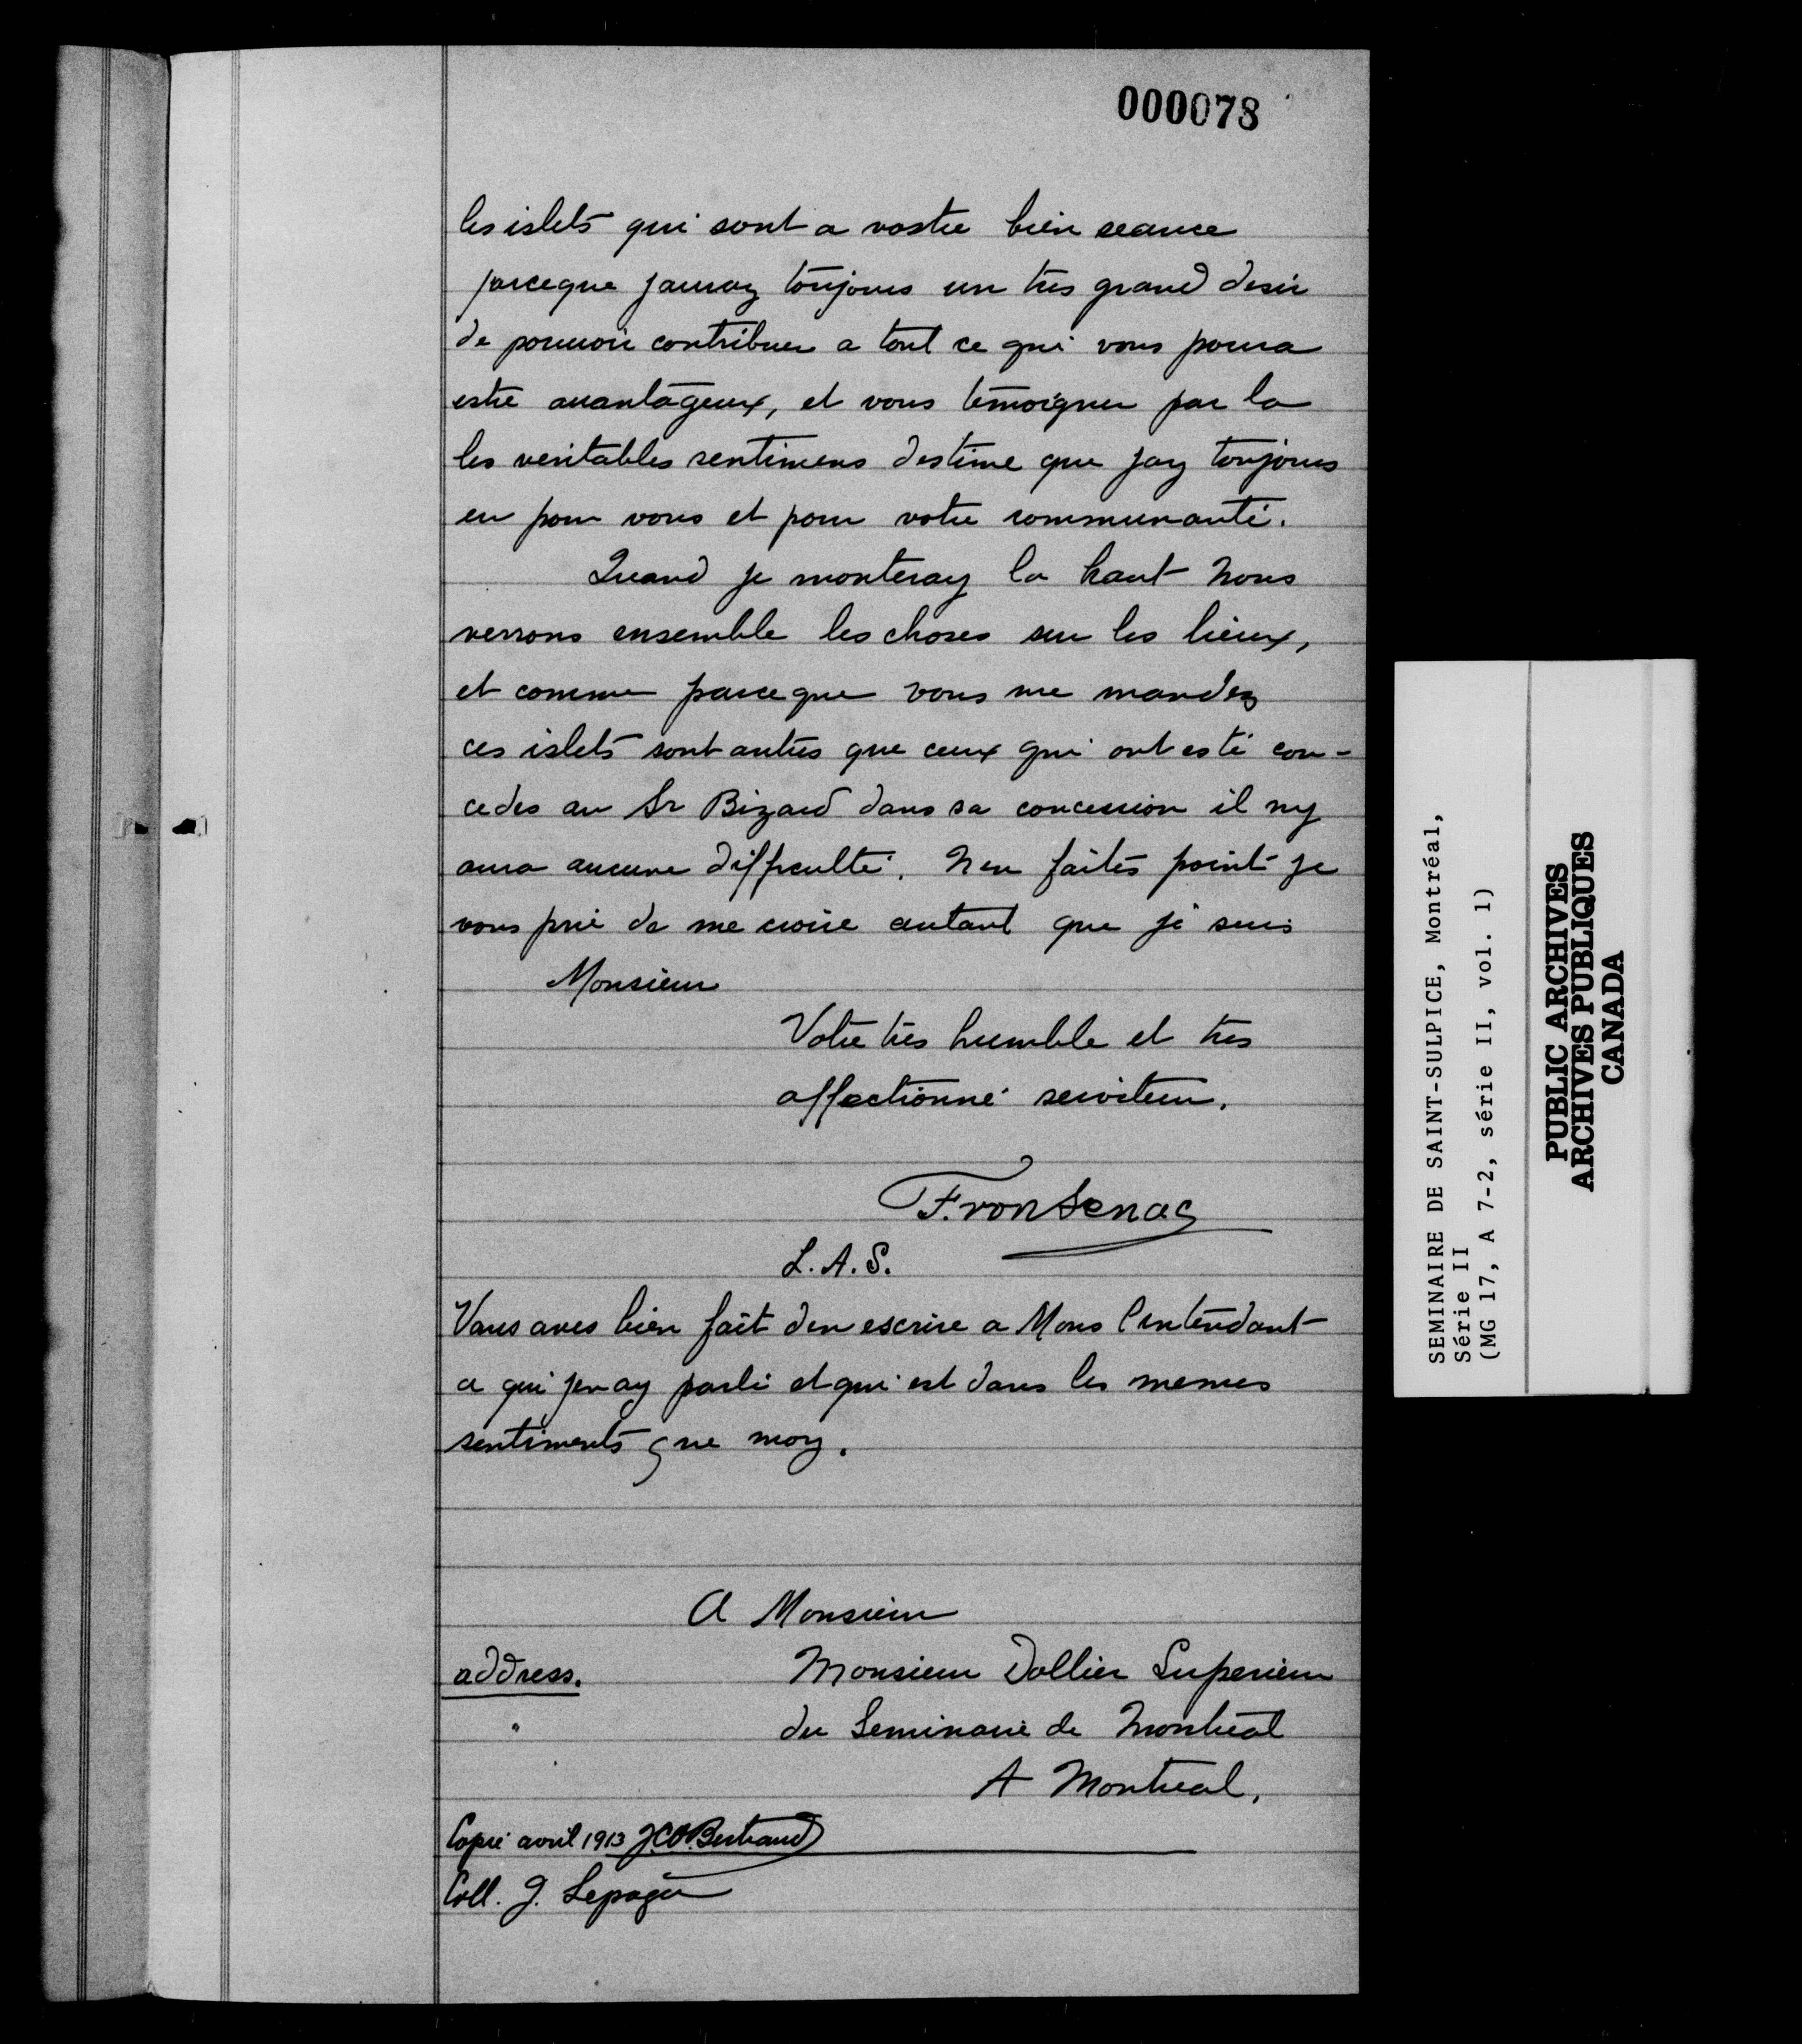 000078
les islets qui sont a vostre bien seance
parceque jauray toujours un tres grand desir
de pouuoir contribuer a tout ce qui vous poura
estre auantageux, et vous temoigner par la
les veritables sentimens destime que jay toujours
eu pour vous et pour votre communauté.
Quand je monteray la haut nous
verrons ensemble les choses sur les lieux,
et comme parceque vous me mandez
ces islets sont autres que ceux qui ont esté con-
cedes au Sr Bizard dans sa concession il ny
aura aucune difficulté. Nen faites point je
vous prie de me croire autant que je suis
Monsieur
Votre tres humble et tres
affectionné serviteur.
Frontenac
L. A. S.
Vous aves bien fait den escrire a Mons lintendant
a qui jen ay parlé et qui est dans les memes
sentiments que moy.
A Monsieur
address. Monsieur Dollier Superieur
" du Seminaire de Montreal
A Montreal.
Copié avril 1913 J.C.O. Bertrand
Coll. J. Lepage
SEMINAIRE DE SAINT-SULPICE, Montréal,
Série II
(MG 17, A 7-2, série II, vol. 1)
PUBLIC ARCHIVES
ARCHIVES PUBLIQUES
CANADA